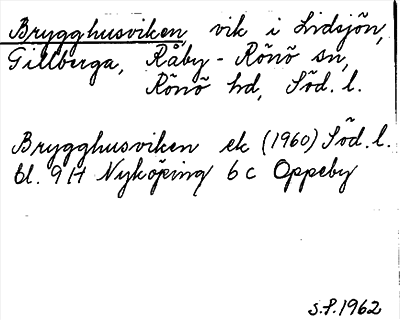 Brygghusviken, vik i Lidsjön,
Gillberga, Råby-Rönö sn,
Rönö hd, Söd. l.
Brygghusviken ek (1960) Söd. l.
bl. 9H Nyköping 6c Oppeby
S.P. 1962